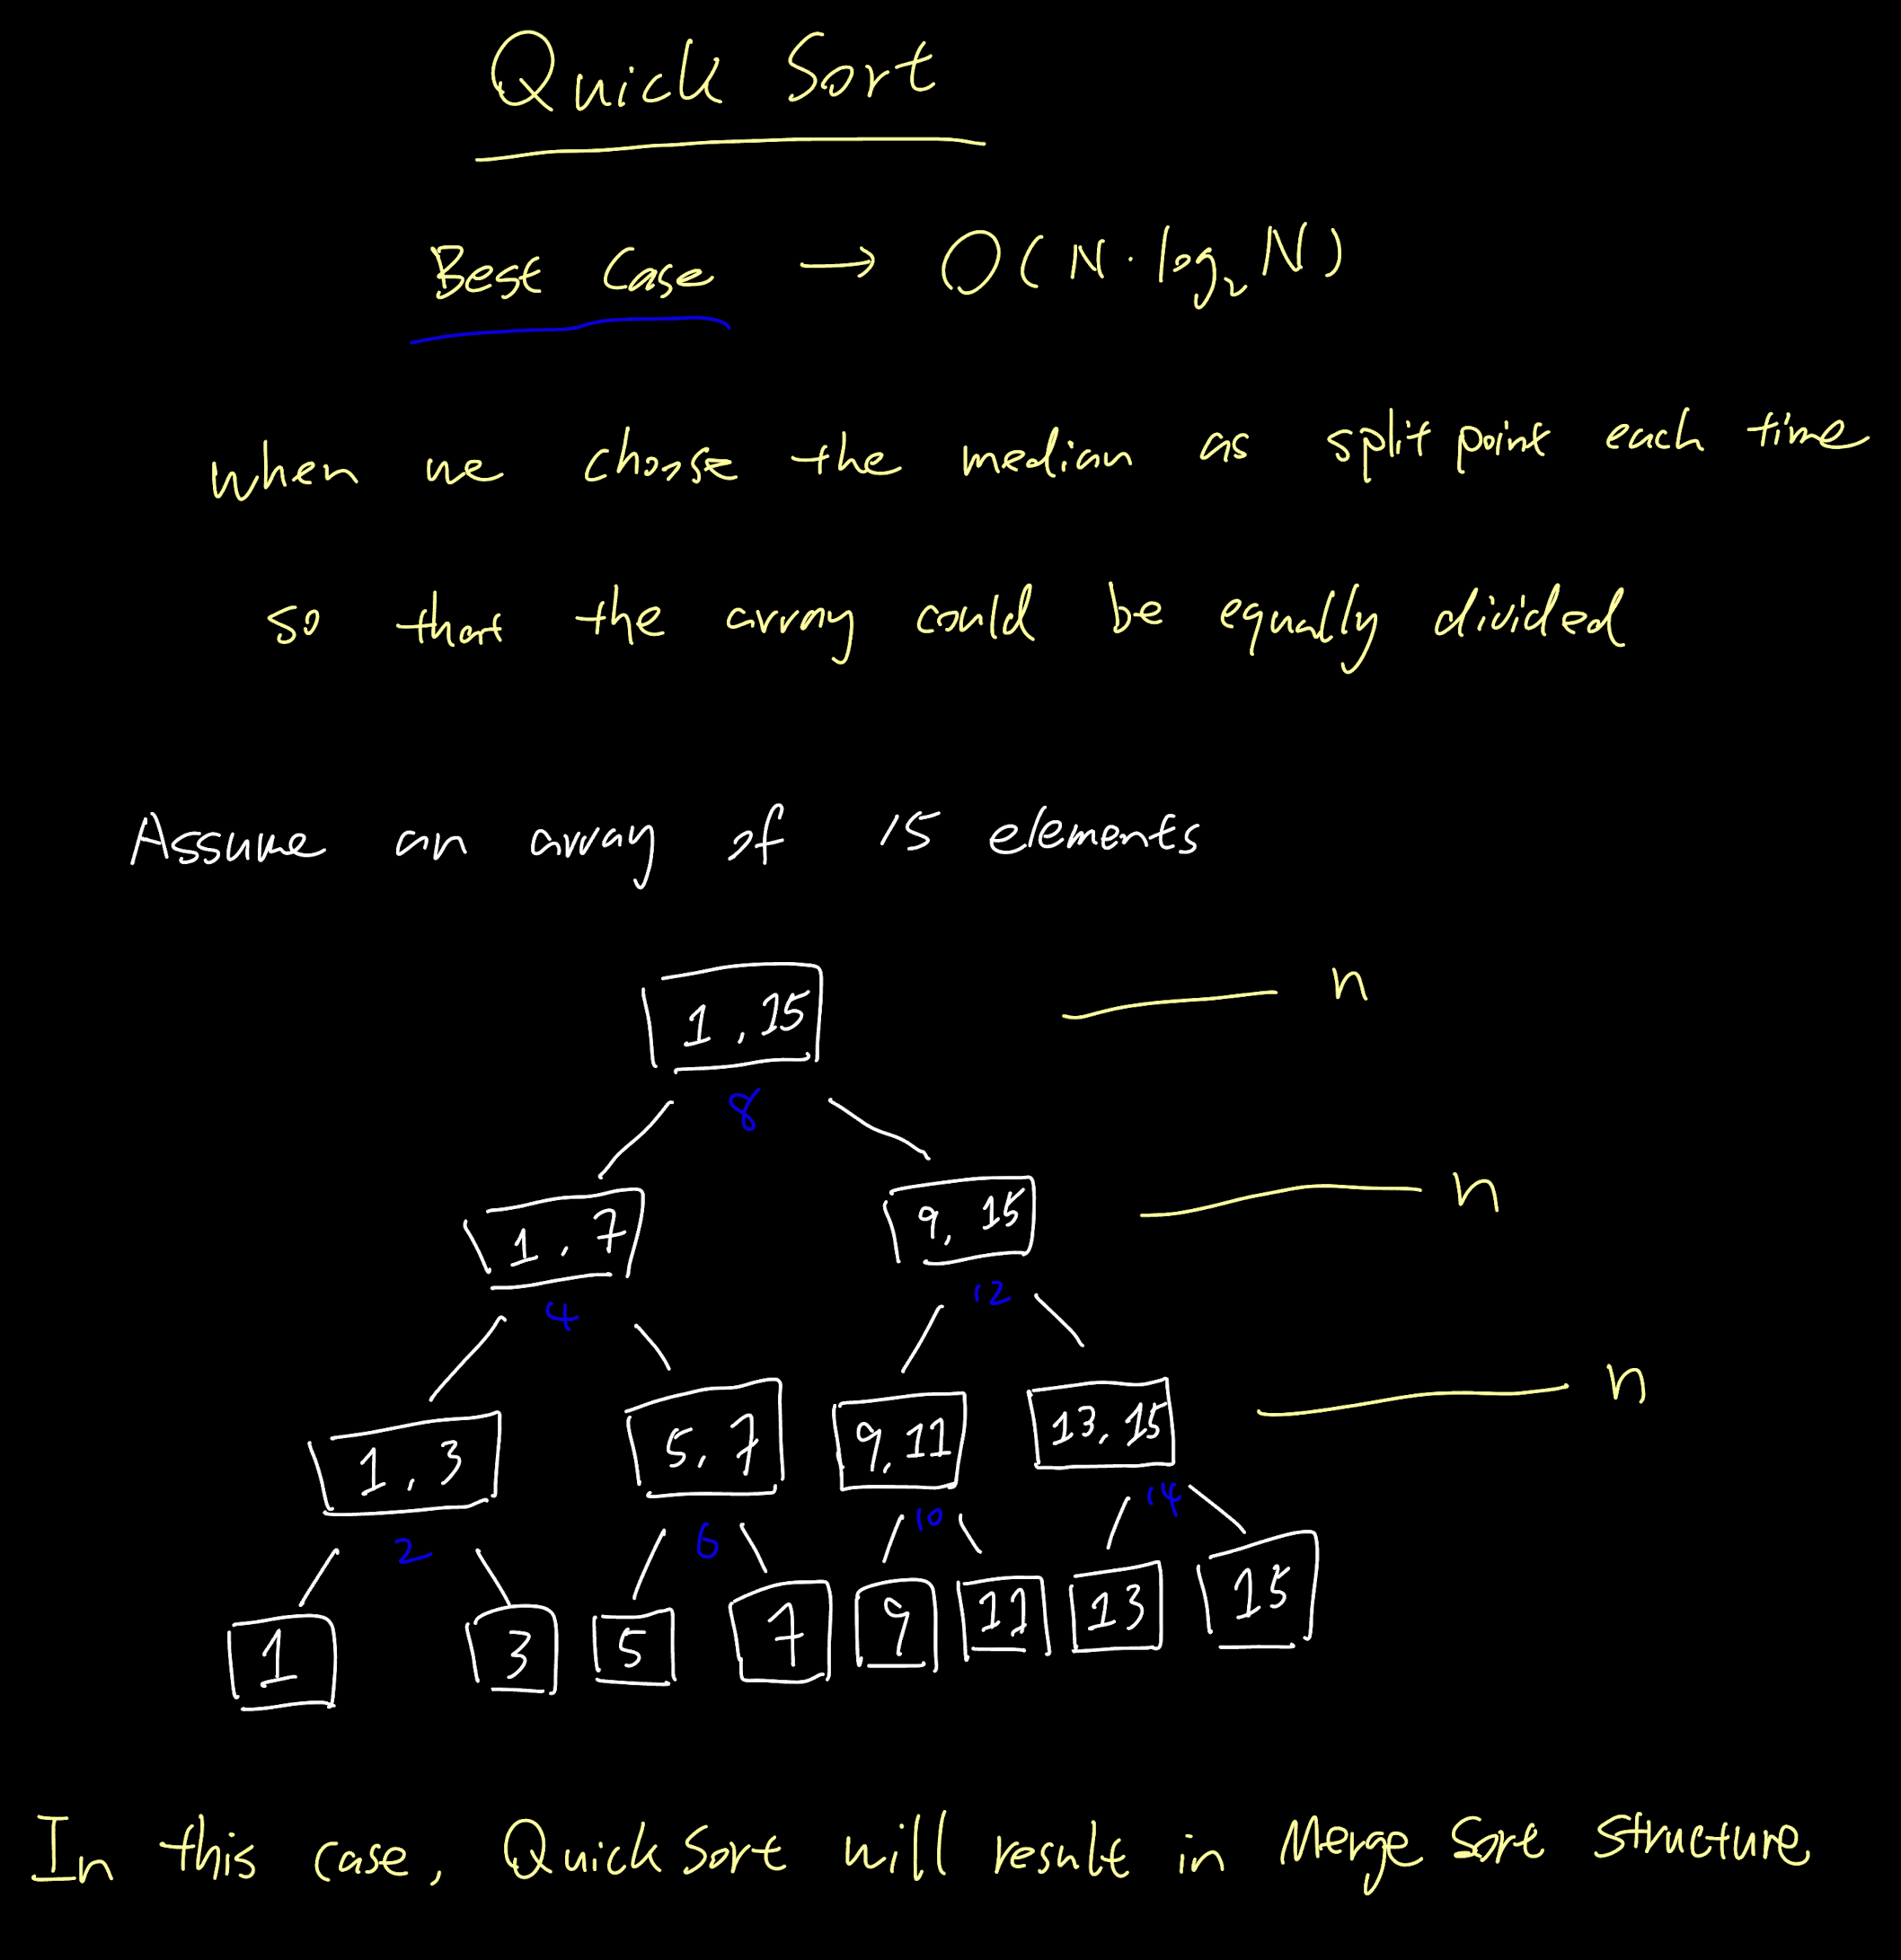 Quick Sort
Best Case → O(N·log₂N)
when we choose the median as split point each time
so that the array could be equally divided
Assume an array of 15 elements
1, 15 n
8
1, 7 9, 15 n
4 12
1, 3 5, 7 9, 11 13, 15 n
2 6 10 14
1 3 5 7 9 11 13 15
In this case, QuickSort will result in Merge Sort Structure